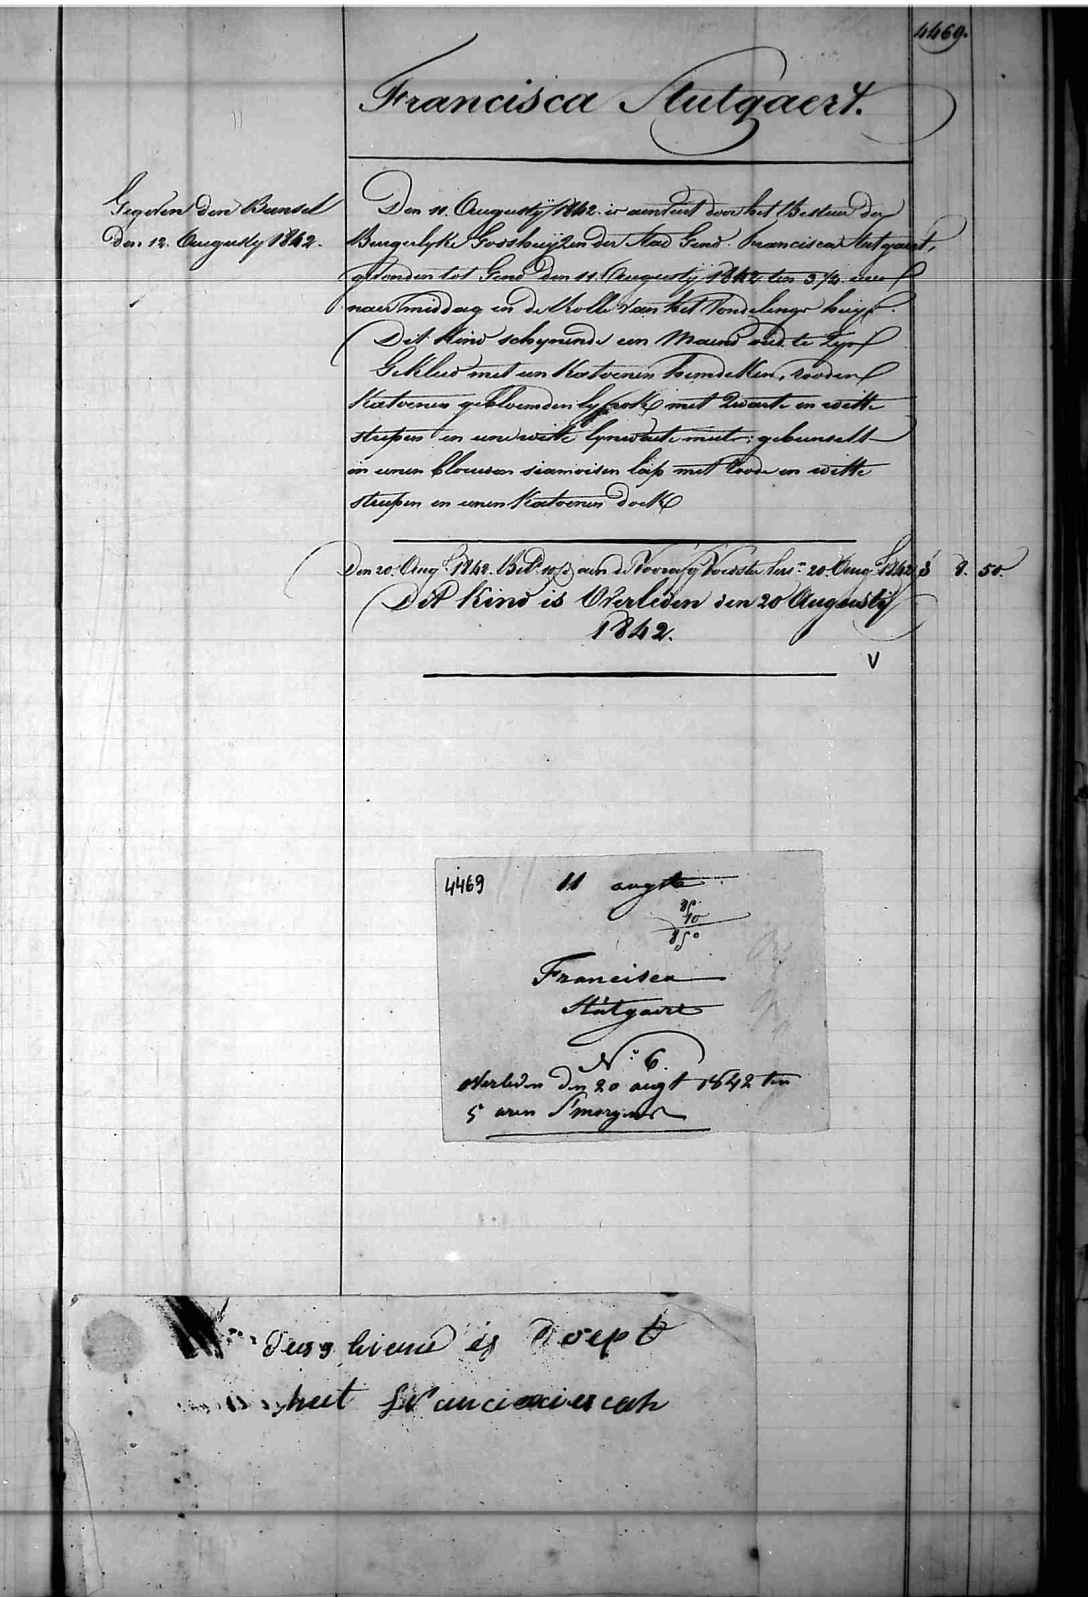 4469.
Francisca Stutgaert.
Gegeven den Bunsel
den 12. Augusty 1842.
Den 11. Augustÿ 1842. is aenveert door het Bestuer der
Burgerlyke Godshuijzen der stad Gend. Francisca Stutgaert,
gevonden tot Gend den 11. Augustÿ 1842 ten 3 1/4 uer
naer middag in de Rolle van het Vondelings huys.
Dit Kind schynende een Maend oud te Zyn
Gekleed met een Katoenen hemdeken, rooden
Katoenen gebloemden lyfrok met Zwarte en witte
strepen en eene witte lynwaete muts: gebunselt
in eenen blauwen siamoisen lap met roode en witte
strepen en eenen Katoenen doek
Den 20. Augt 1842. Bet. aen de Voedster 20. Aug. 1842 8. 50.
Dit Kind is Overleden den 20 Augustÿ
1842.
V
4469 11 augste
85
10
850
Francisca
Stutgaert
N° 6.
overleden den 20 augt 1842 ten
5 uren S'morgens
is Doept
het